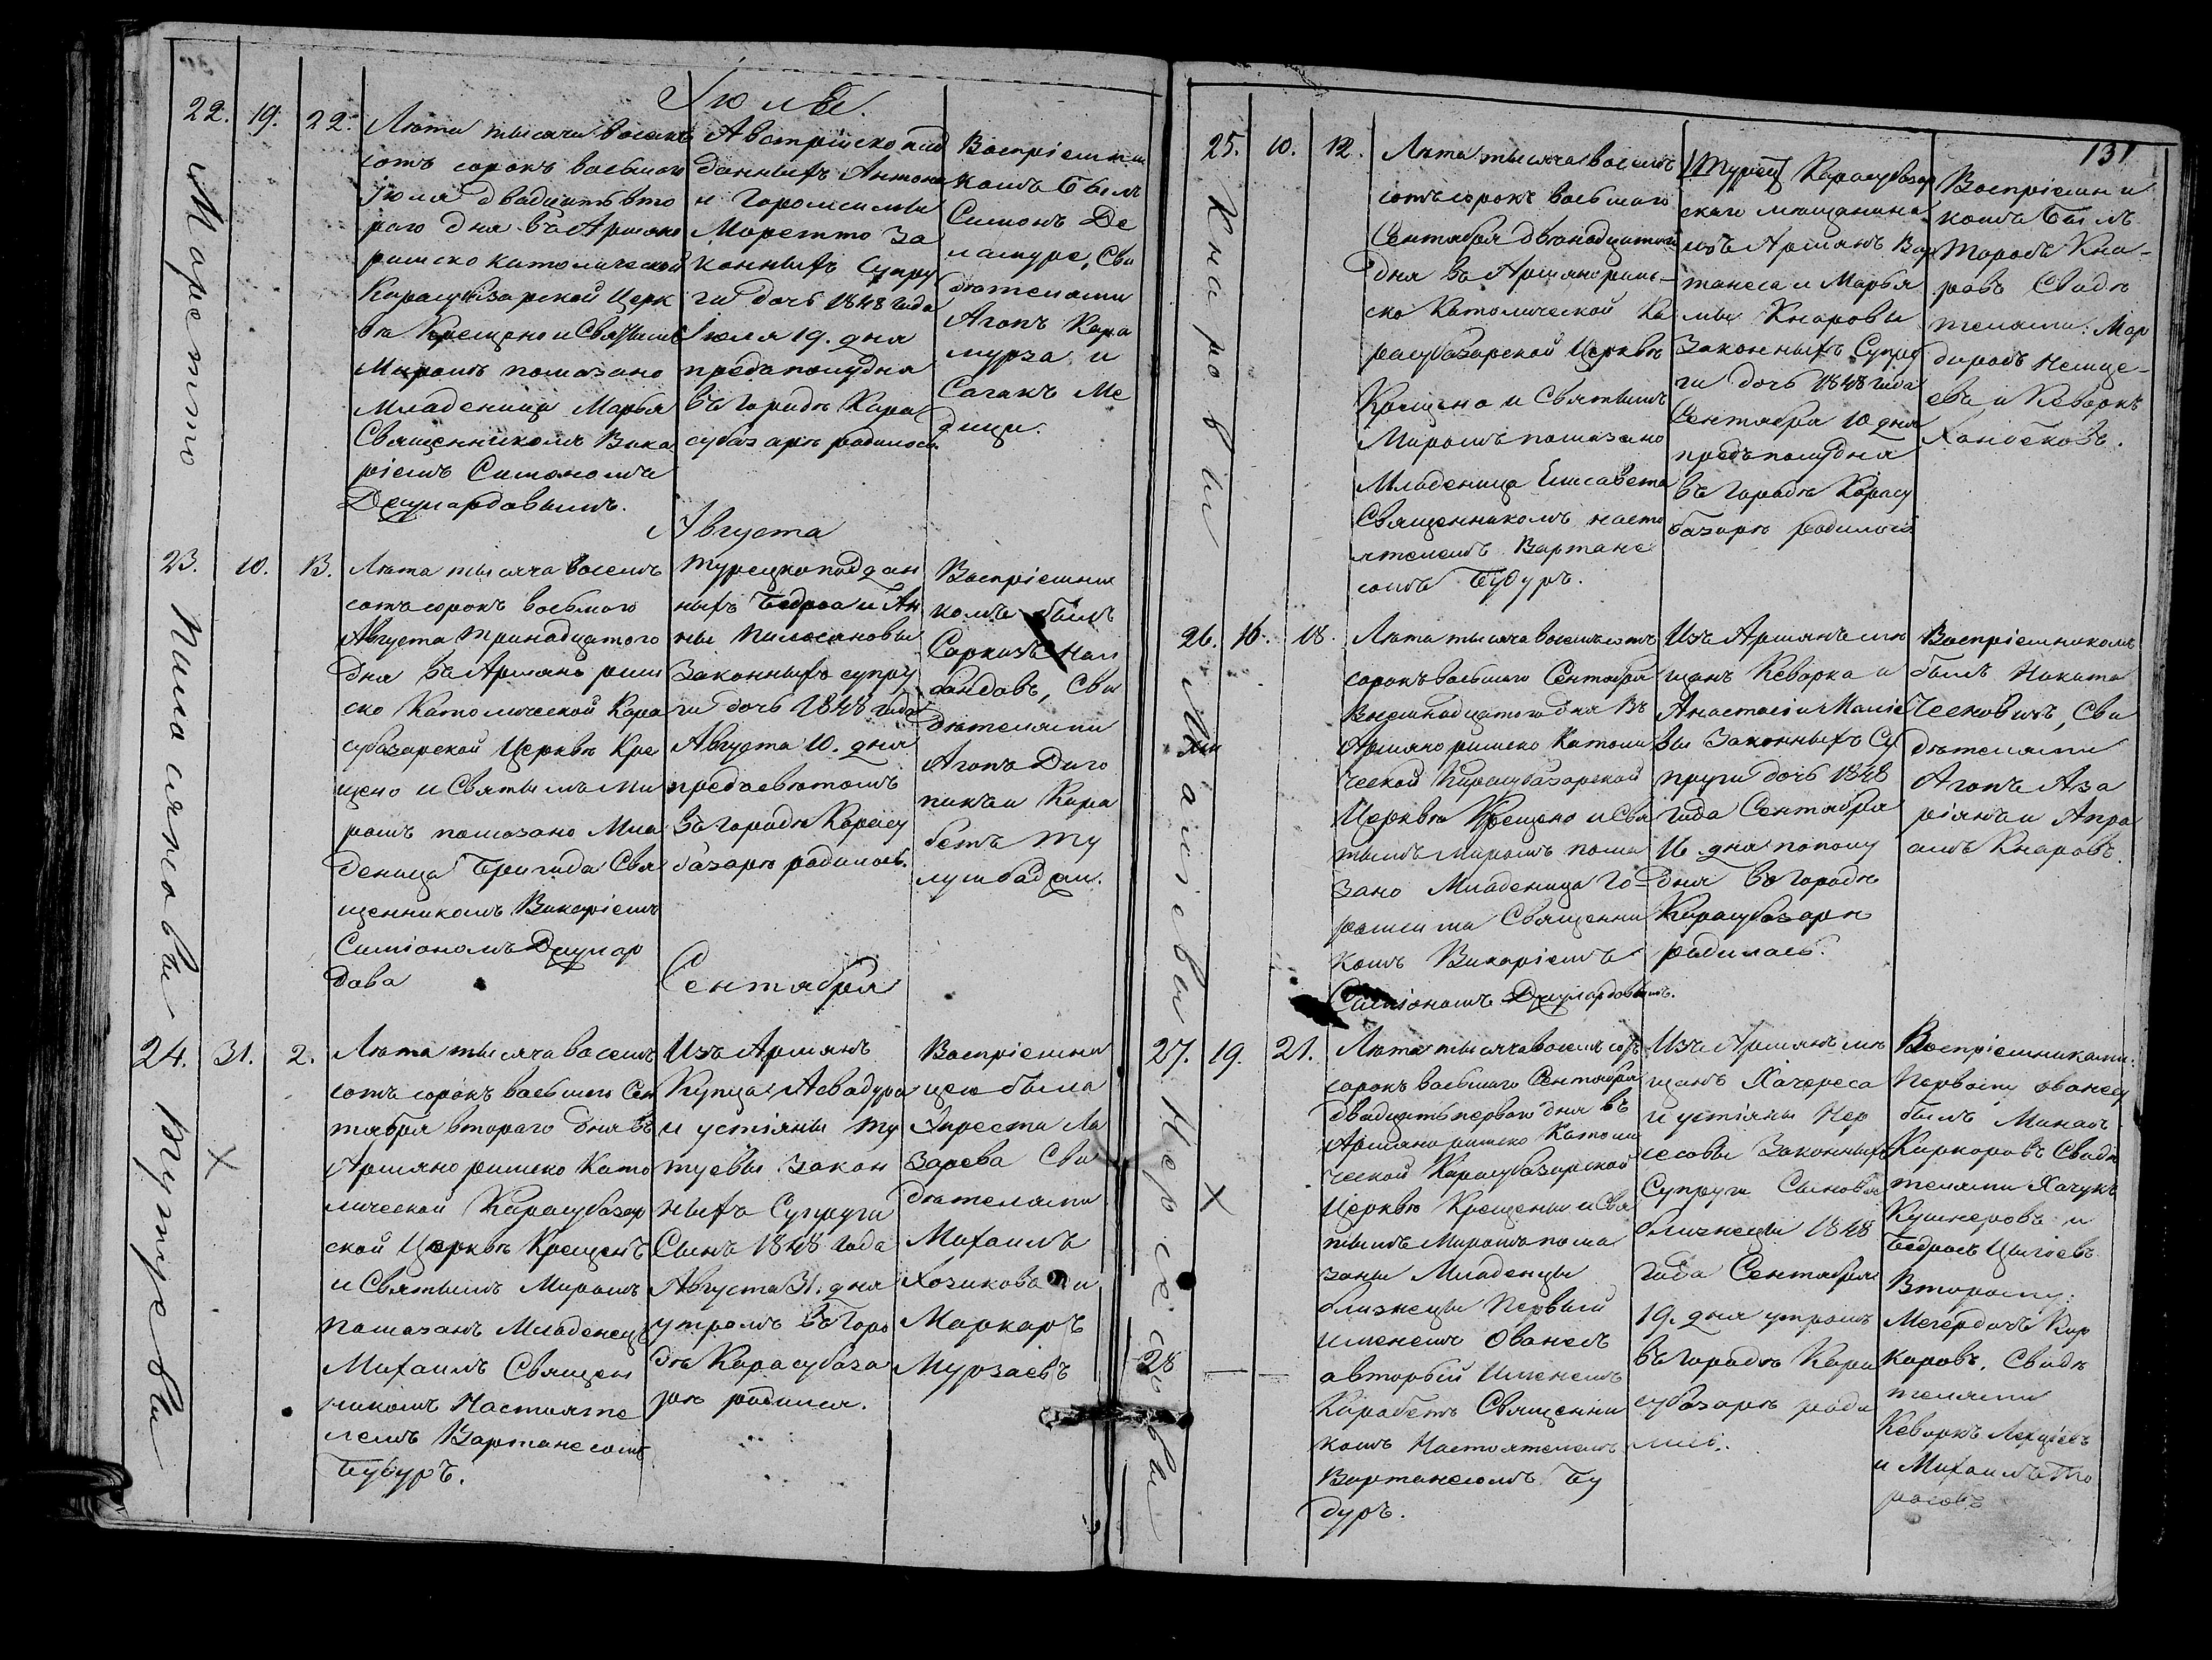 Іюль.
22. 19. 22.
Лѣта тысяча восемь
сотъ сорокъ восьмаго
Іюля двадцать вто
раго дня въ Армяно
римско католической
Карасубазарской Церк
вѣ Крещено и Святымъ
Миромъ помазано
Младеница Марья
Священникомъ Вика
ріемъ Симономъ
Австрійско под
данныхъ Антона
и Горопсимы
Моретто за
конныхъ Супру
ги дочь 1848 года
Іюля 19. дня
предъ полудня
въ городѣ Кара
субазарѣ родилось.
Воспріемни
комъ былъ
Симонъ Де
латуре, Сви
дѣтелями
Агопъ Кара
мурза и
Сагакъ Ме
Моретто
Августа
23. 10. 13.
Лѣта тысяча восемь
сотъ сорокъ восьмаго
Августа тринадцатого
дня въ Армяно рим
ско Католической Кара
субазарской Церквѣ Кре
щено и Святымъ Ми
ромъ помазано Мла
деница Бригида Свя
щенникомъ Викаріемъ
Симіономъ
дова
Турецко поддан
ныхъ Бедроса и Ан
ны Пилосяновы
Законныхъ супру
ги дочь 1848 года
Августа 10. дня
предъ свѣтомъ
въ городѣ Карасу
базарѣ родилась.
Воспріемни
комъ былъ
Саркизъ Нал
бандовъ, Сви
дѣтелями
Агопъ
и Кара
бетъ Ту
Пилосяновы
Сентября
24. 31. 2.
Лѣта тысяча восемь
сотъ сорокъ восьмаго Сен
тября втораго дня въ
Армяно римско Като
лической Карасубазар
ской Церквѣ Крещенъ
и Святымъ Миромъ
помазанъ Младенецъ
Михаилъ Священ
никомъ Настояте
лемъ Вартанесомъ
Будуръ.
Изъ Армянъ
Купца Асвадура
и Устіяны Ту
туевы закон
ныхъ Супруги
Сынъ 1848 года
Августа 31. дня
утромъ въ горо
дѣ Карасубаза
рѣ родился.
Воспріемни
цею была
Лa
зарева Сви
дѣтелями
Михаилъ
Хозикова и
Маркаръ
Мурзаевъ
Тутуевы
131
25. 10. 12.
Лѣта тысяча восемь
сотъ сорокъ восьмаго
Сентября двѣнадцатого
дня въ Армяно рим-
ско Католической Ка
расубазарской Церквѣ
Крещено и Святымъ
Миромъ помазано
Младеница Елисавета
Священникомъ насто
ятелемъ Вартане
сомъ Будуръ.
Карасубазар
скаго мещанина
изъ Армянъ Вар
танеса и Марья
мы Кнаровы
Законныхъ Супру
ги дочь 1848 года
Сентября 10 дня
предъ полудня
въ городѣ Карасу
базарѣ родилось
Воспріемни
комъ былъ
Торосъ Кна-
ровъ Свидѣ
телями: Мар
диросъ Немце-
евъ и Кеворкъ
Ханбековъ.
Кнаровы
26. 16. 18.
Лѣта тысяча восемь сотъ
сорокъ восьмаго Сентября
Восемнадцатого дня Въ
Армяно римско Католи
ческой Карасубазарской
Церквѣ Крещено и Свя
тымъ Миромъ пома
зано Младеница Го-
Священни
комъ Викаріемъ
Симіономъ
Изъ Армянъ мѣ
щанъ Кеворка и
Анастасіи Маліе
вы Законныхъ Су
пруги дочь 1848
года Сентября
16 дня по полу
дня въ городѣ
Карасубазарѣ
родилась.
Воспріемникомъ
былъ Никита
Сви
дѣтелями
Агопъ Аза
ріянъ и Апра
амъ Кнаровъ.
27. 19. 21.
28 — —
Лѣта тысяча восемь сотъ
сорокъ восьмаго Сентября
двадцать перваго дня въ
Армяно римско Католи
ческой Карасубазарской
Церквѣ Крещены и Свя
тымъ Миромъ пома
заны Младенцы
близнецы Первый
именемъ Ованесъ
а вторый Именемъ
Карабетъ Священни
комъ Настоятелемъ
Вартанесомъ Бу
дуръ.
Изъ Армянъ мѣ
щанъ Хачереса
и Устіяны Нер
сесовы Законныхъ
Супруги Сыновья
близнецы 1848
года Сентября
19. дня утромъ
въ городѣ Кара
субазарѣ роди
лись.
Воспріемниками:
Первому Ованесу
былъ Минасъ
Киркоровъ Свидѣ
телями Хачукъ
Кушнеровъ и
Бедросъ
Второму:
Мегердичъ Кир
коровъ. Свидѣ
телями
Кеворкъ
и Михаилъ То
росовъ
Нерсесовы